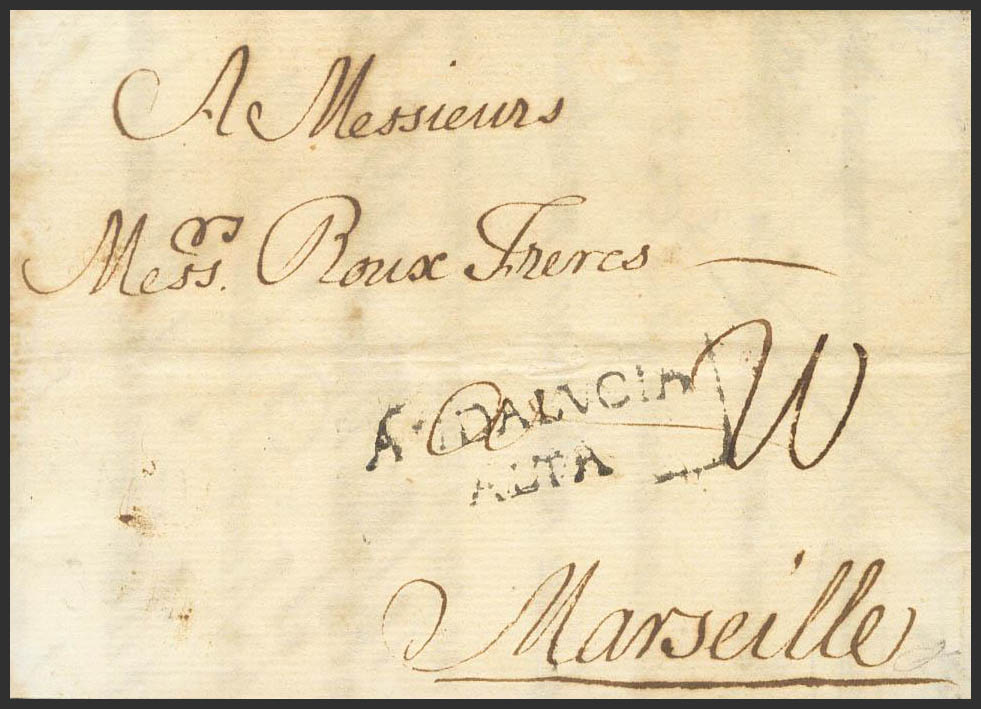 A Messieurs
Mess.rs Roux Freres
a
ANDALVCIA
ALTA
Marseille